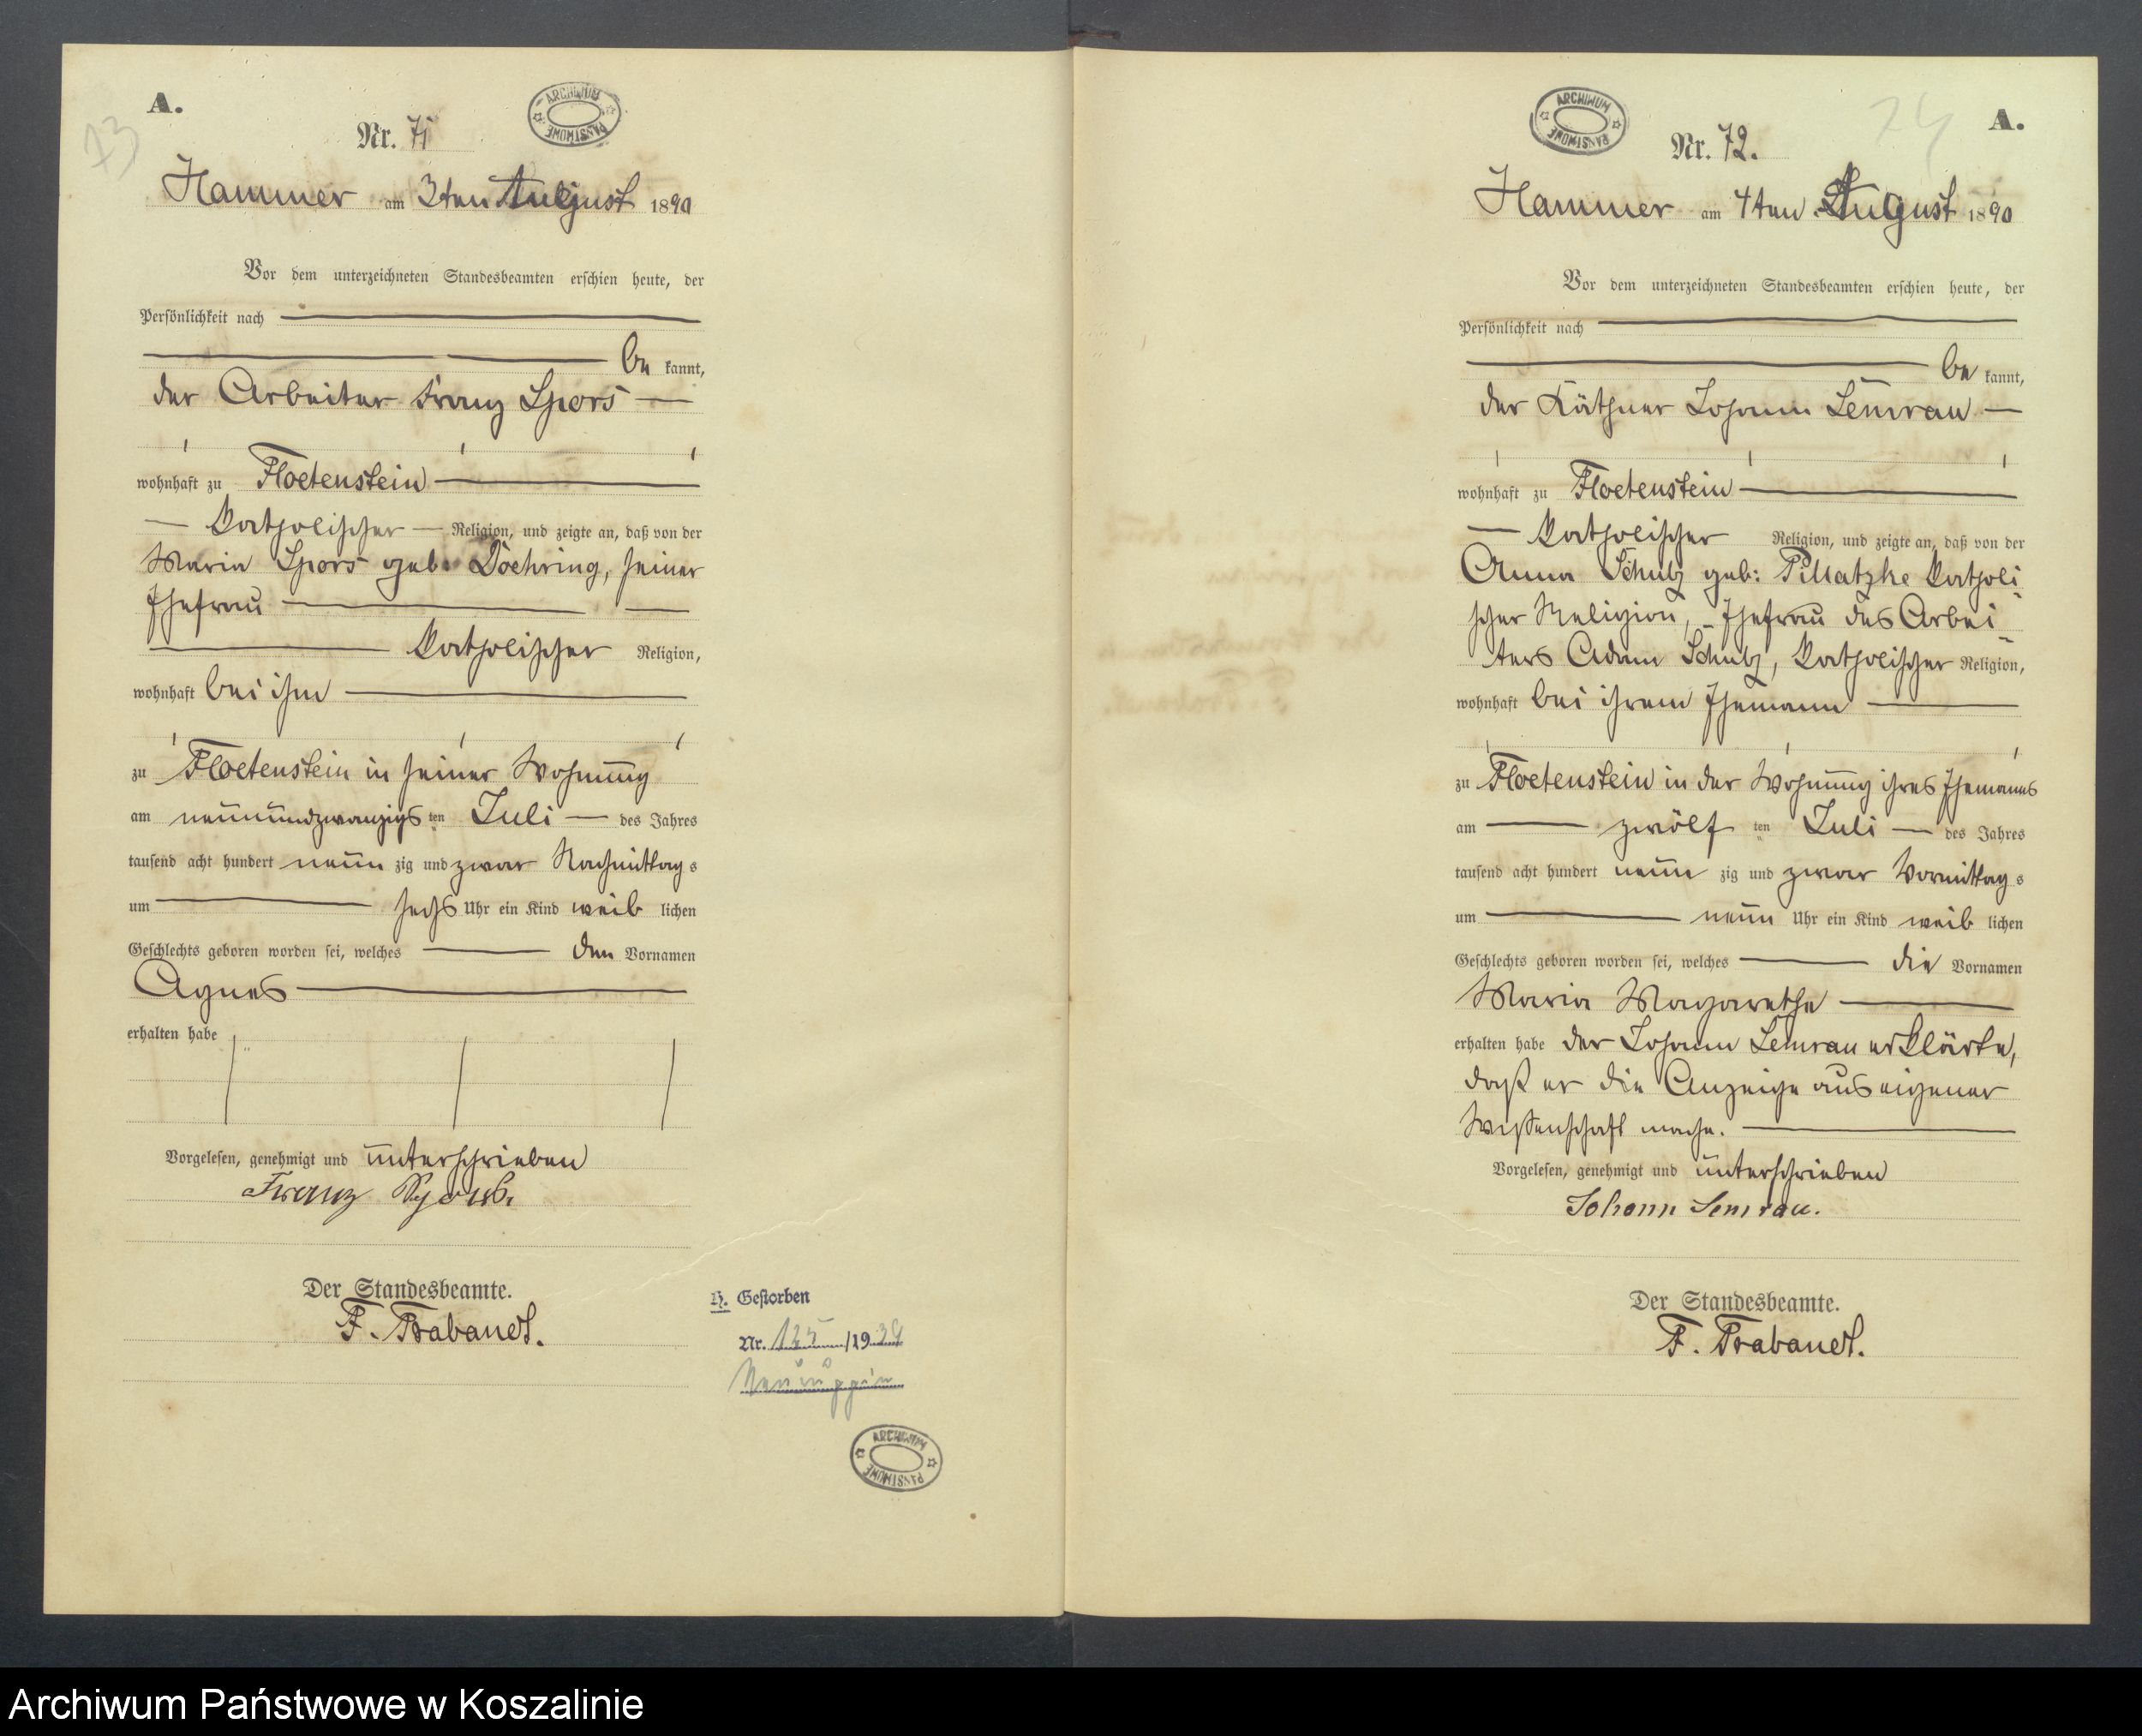 73
A.
ARCHIWUM PAŃSTWOWE
Nr. 71
Hammer am 3ten August 1890
Vor dem unterzeichneten Standesbeamten erschien heute, der
Persönlichkeit nach
be kannt,
der Arbeiter Franz Spors
wohnhaft zu Floetenstein
katholischer Religion, und zeigte an, daß von der
Maria Spors geb: Doehring, seiner
Ehefrau
katholischer Religion,
wohnhaft bei ihm
zu Floetenstein in seiner Wohnung
am neunundzwanzigs ten Juli des Jahres
tausend acht hundert neun zig und zwar Nachmittag s
um sechs Uhr ein Kind weib lichen
Geschlechts geboren worden sei, welches den Vornamen
Agnes
erhalten habe
Vorgelesen, genehmigt und unterschrieben
Franz
Der Standesbeamte.
F. Trabandt.
H. Gestorben
Nr. 125/1939
Neuruppin
ARCHIWUM PAŃSTWOWE
ARCHIWUM PAŃSTWOWE
74
A.
Nr. 72.
Hammer am 4ten August 1890
Vor dem unterzeichneten Standesbeamten erschien heute, der
Persönlichkeit nach
be kannt,
der Käthner Johann Semrau
wohnhaft zu Floetenstein
katholischer Religion, und zeigte an, daß von der
Anna Schulz geb: Pillatzke katholi
scher Religion, Ehefrau des Arbei
ters Adam Schulz, katholischer Religion,
wohnhaft bei ihrem Ehemann
zu Floetenstein in der Wohnung ihres Ehemanns
am zwölf ten Juli des Jahres
tausend acht hundert neun zig und zwar Vormittag s
um neun Uhr ein Kind weib lichen
Geschlechts geboren worden sei, welches die Vornamen
Maria Magarethe
erhalten habe der Johann Semrau erklärte,
daß er die Anzeige aus eigener
Wissenschaft mache.
Vorgelesen, genehmigt und unterschrieben
Johann Semrau.
Der Standesbeamte.
F. Trabandt.
Archiwum Państwowe w Koszalinie